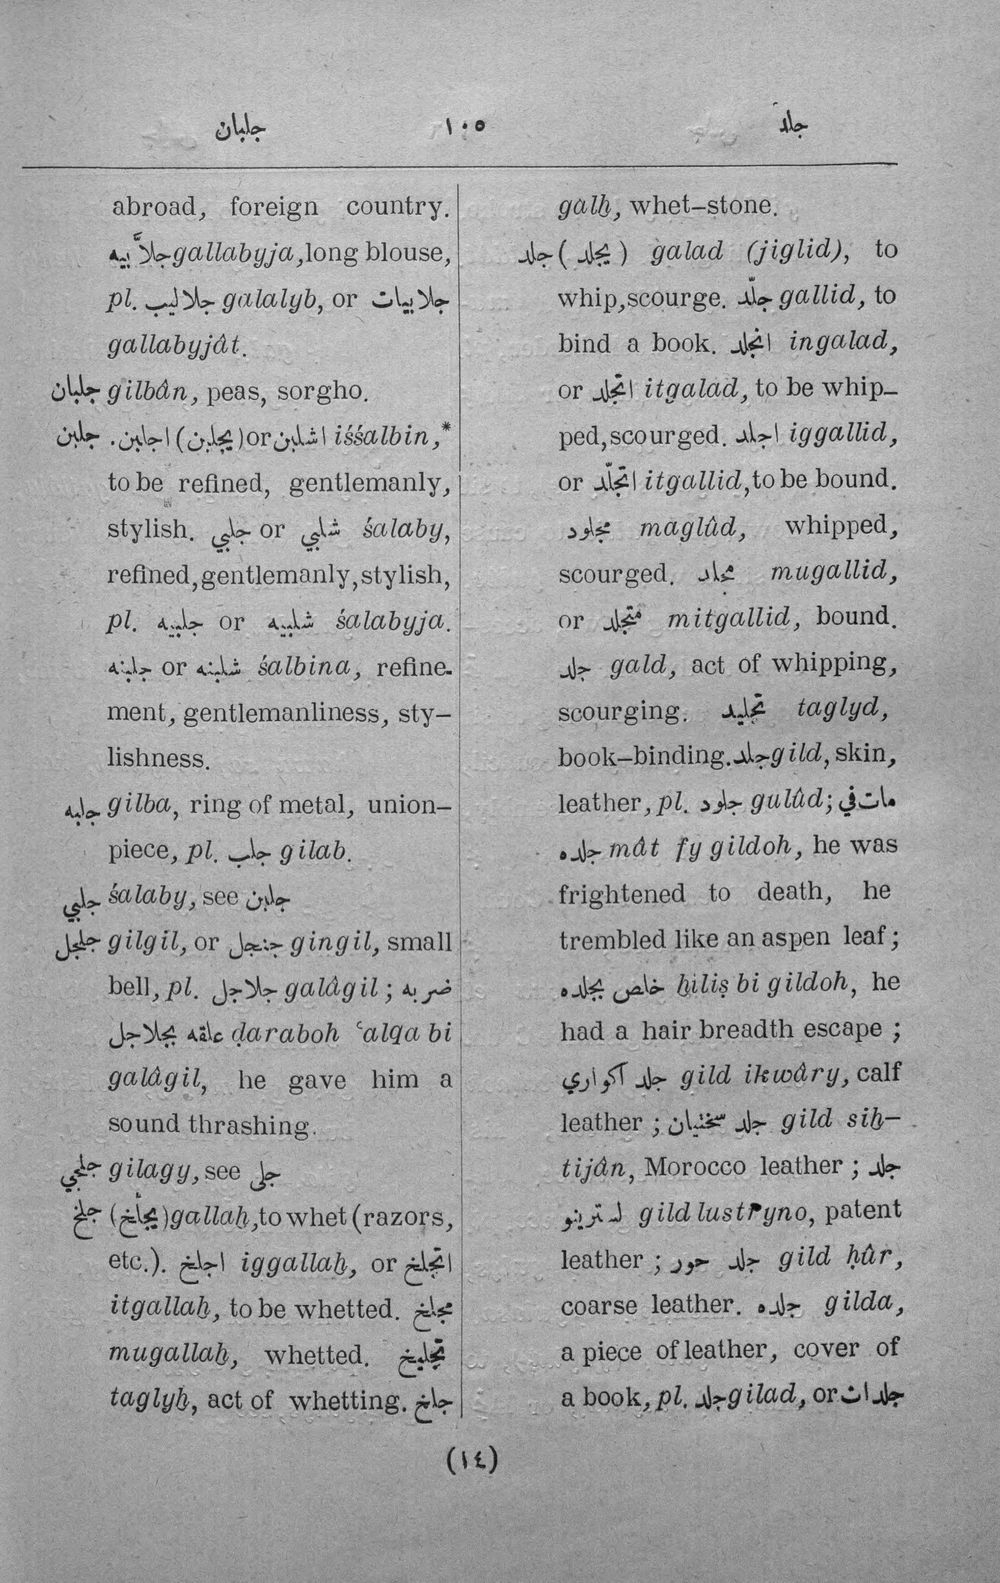 جلبان ١٠٥ جلد
abroad, foreign country.
جلاَّ بيه gallabyja, long blouse,
pl. جلاليب galalyb, or جلابيات
gallabyjât.
جلبان gilbân, peas, sorgho.
جلبن . اجلبن (يجلبن) or اشلبن iśśalbin,*
to be refined, gentlemanly,
stylish. جلبي or شلبي śalaby,
refined, gentlemanly, stylish,
pl. جلبيه or شلبيه śalabyja.
جلبنه or شلبنه śalbina, refine-
ment, gentlemanliness, sty-
lishness.
جلبه gilba, ring of metal, union-
piece, pl. جلب gilab.
جلبي śalaby, see جلبن
جلجل gilgil, or جنجل gingil, small
bell, pl. جلاجل galâgil ; ضربه
علقه بجلاجل ḍaraboh ʿalqa bi
galâgil, he gave him a
sound thrashing.
جلجي gilagy, see جلى
جلخ (يجلّخ) gallaẖ, to whet (razors,
etc.). اجلخ iggallaẖ, or اتجلخ
itgallaẖ, to be whetted. مجلخ
mugallaẖ, whetted. تجليخ
taglyẖ, act of whetting. جلخ
galẖ, whet-stone.
جلد ( يجلد ) galad (jiglid), to
whip, scourge. جلّد gallid, to
bind a book. انجلد ingalad,
or اتجلد itgalad, to be whip-
ped, scourged. اجلد iggallid,
or اتجلّد itgallid, to be bound.
مجلود maglûd, whipped,
scourged. مجلد mugallid,
or متجلد mitgallid, bound.
جلد gald, act of whipping,
scourging. تجليد taglyd,
book-binding. جلد gild, skin,
leather, pl. جلود gulûd; مات في
جلده mât fy gildoh, he was
frightened to death, he
trembled like an aspen leaf ;
خلص بجلده ẖiliṣ bi gildoh, he
had a hair breadth escape ;
جلد اكواري gild ikwâry, calf
leather ; جلد سختيان gild siẖ-
tijân, Morocco leather ; جلد
لسترينو gild lustryno, patent
leather ; جلد حور gild ḥûr,
coarse leather. جلده gilda,
a piece of leather, cover of
a book, pl. جلد gilad, or جلدات
(١٤)